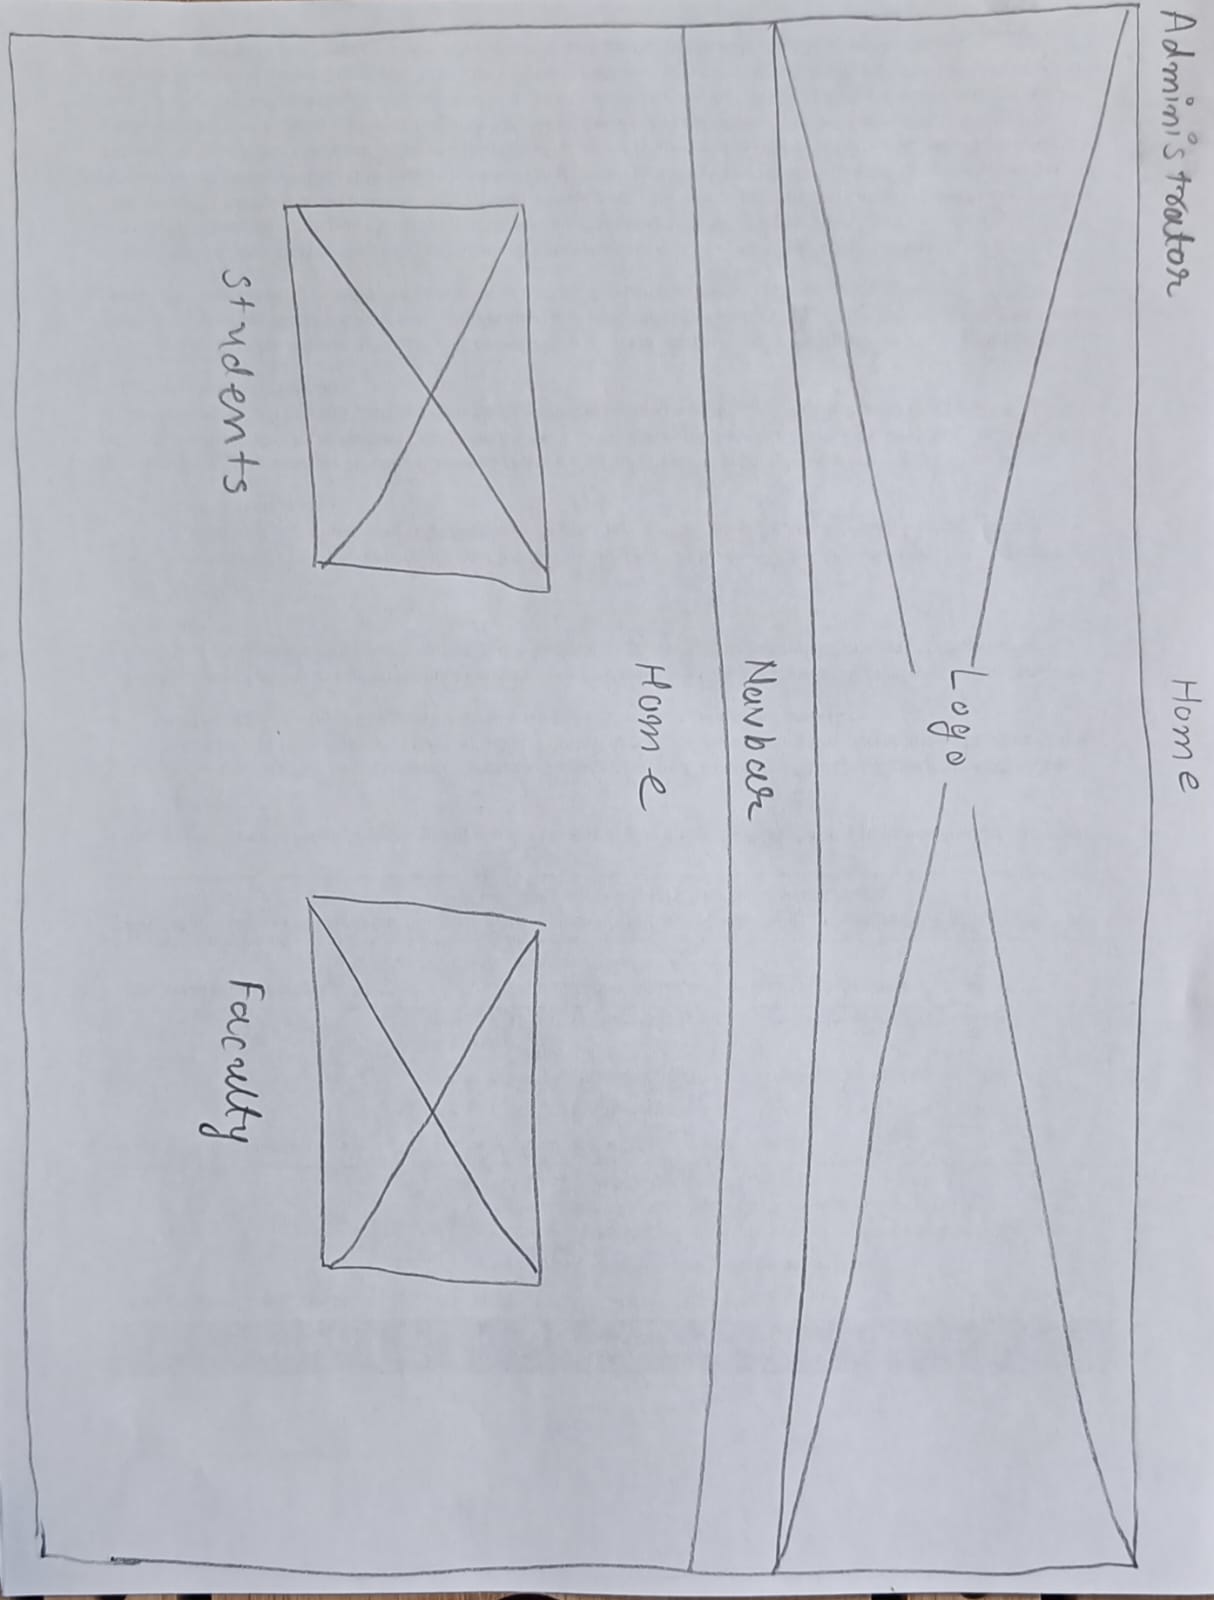 Administrator Home
Logo
Navbar
Home
Students Faculty